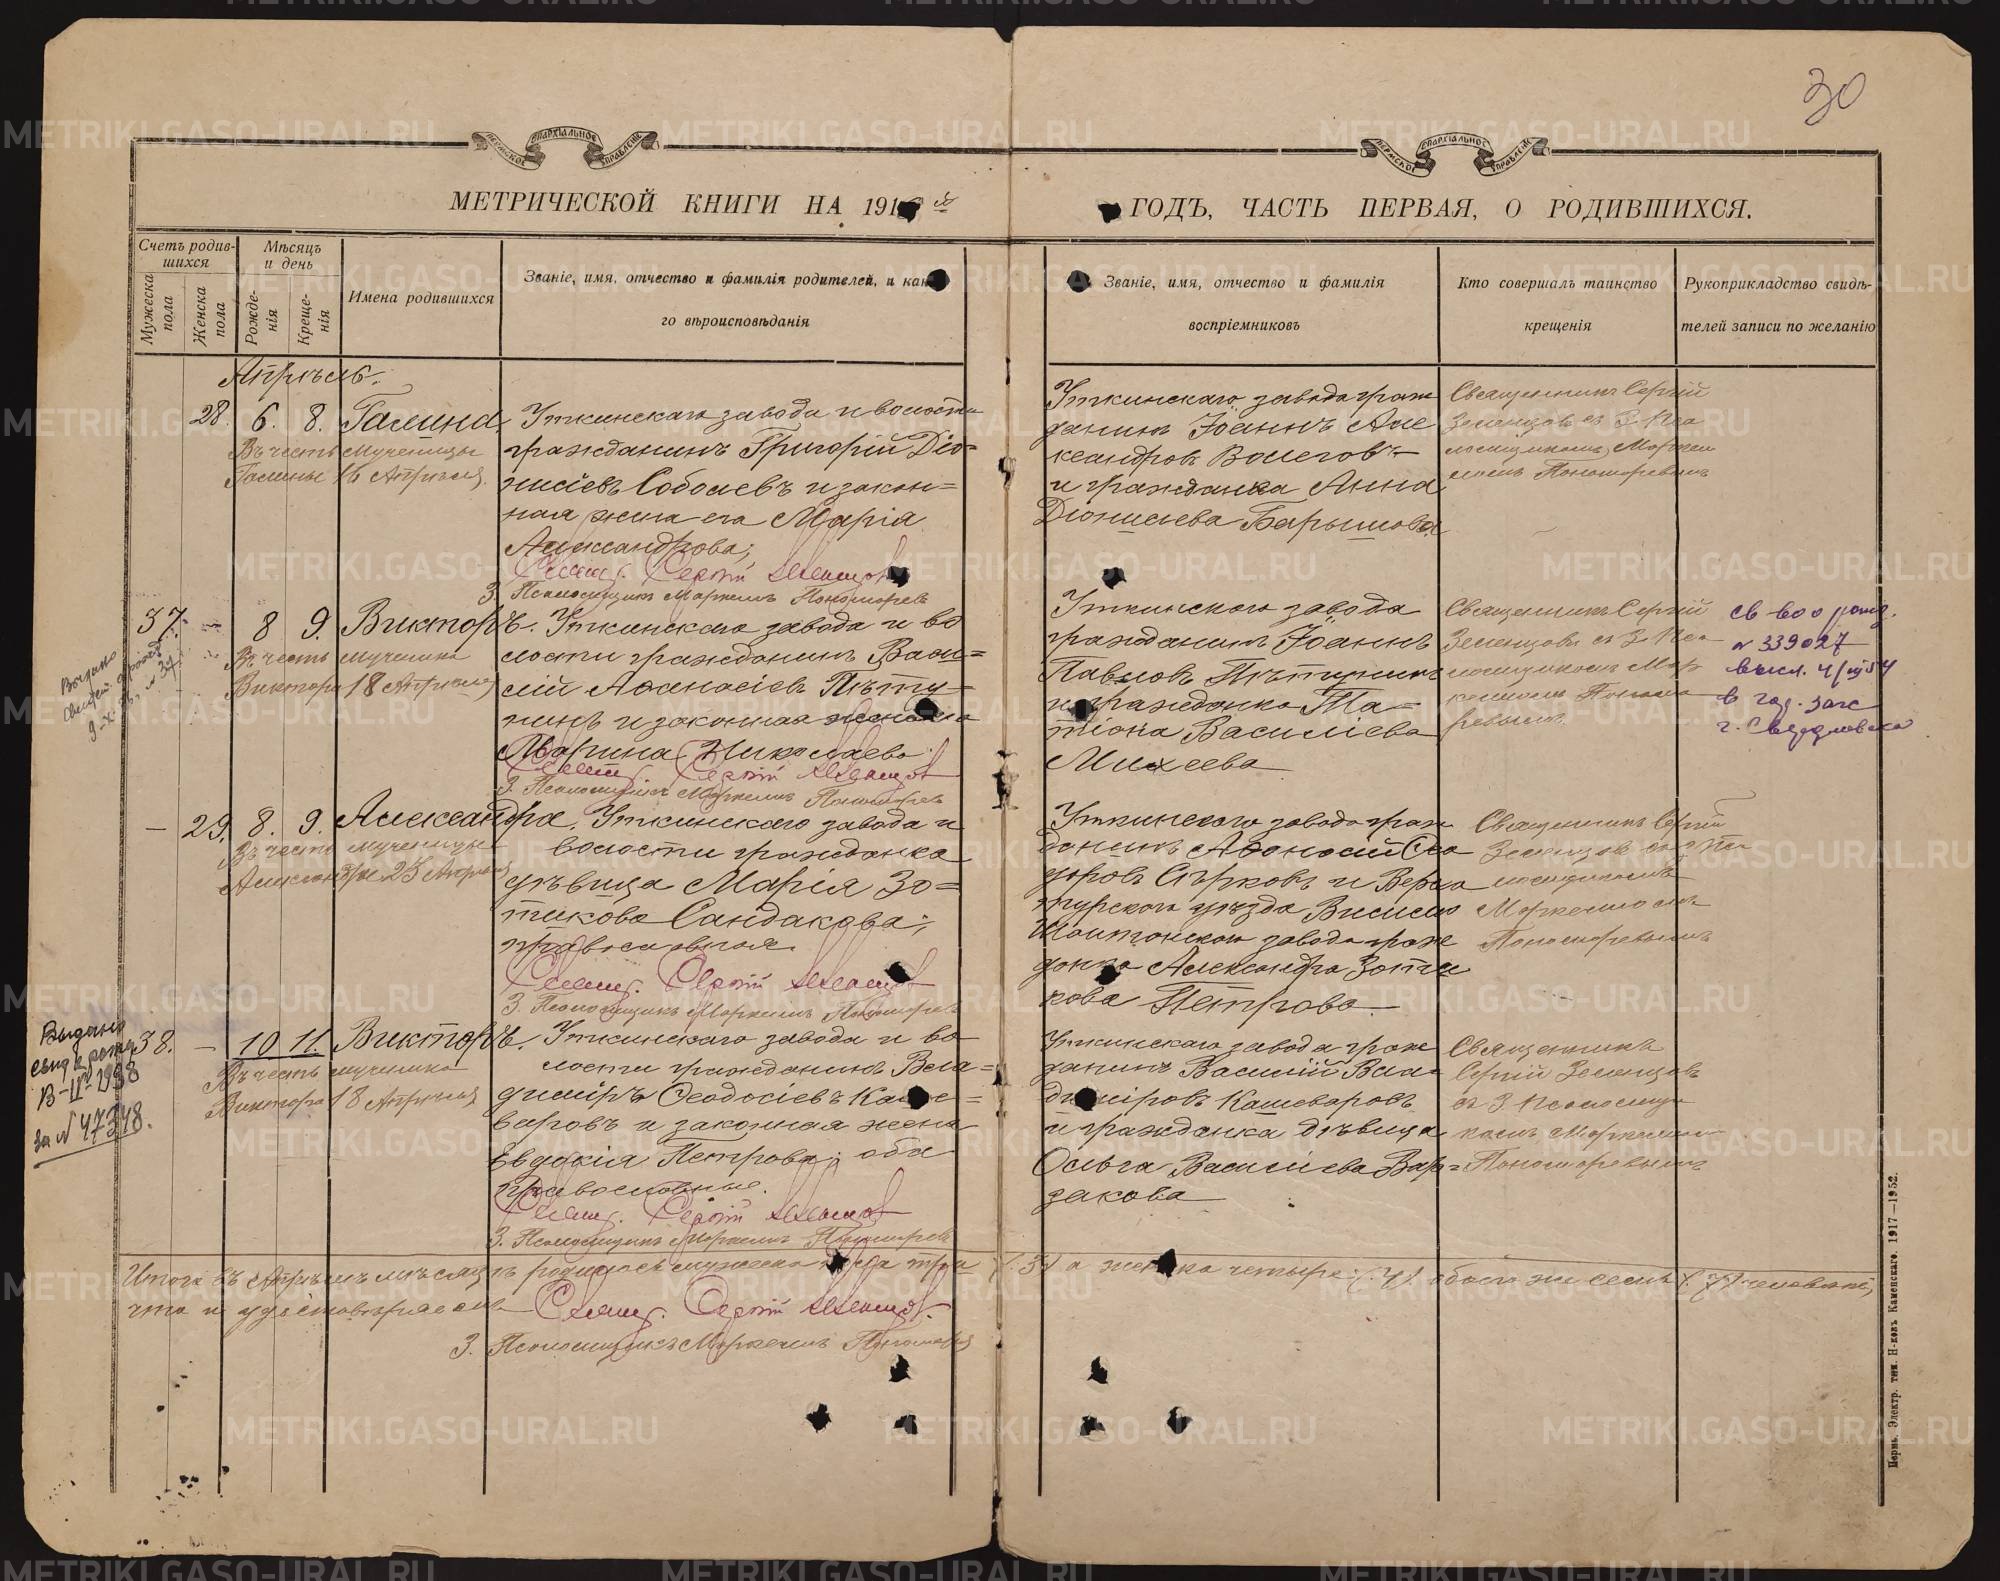 30
ПЕРМСКОЕ ЕПАРХІАЛЬНОЕ УПРАВЛЕНІЕ
ПЕРМСКОЕ ЕПАРХІАЛЬНОЕ УПРАВЛЕНІЕ
МЕТРИЧЕСКОЙ КНИГИ НА 191
ГОДЪ, ЧАСТЬ ПЕРВАЯ, О РОДИВШИХСЯ.
Счетъ родив-
шихся
Мужеска
пола
Женска
пола
Мѣсяцъ
и день
Рожде-
нія
Креще-
нія
Имена родившихся
Званіе, имя, отчество и фамилія родителей, и како
го вѣроисповѣданія
Званіе, имя, отчество и фамилія
воспріемниковъ
Кто совершалъ таинство
крещенія
Рукоприкладство свидѣ-
телей записи по желанію
Апрѣль.
28. 6. 8. Галина,
Въ честь мученицы
Галины 16 Апрѣля.
Уткинскаго завода и волости
гражданинъ Григорій Діо-
нисіевъ Соболевъ и закон-
ная жена его Марія
Александрова;
Свящ. Сергій Зеленцовъ
З. Псаломщика Маркеллъ Пономаревъ
Уткинскаго завода граж
данинъ Іоаннъ Але
ксандровъ Волеговъ
и гражданка Анна
Діонисіева Барышова.
Священникъ Сергій
Зеленцовъ съ З. Пса
ломщикомъ Маркел
ломъ Пономаревымъ
37. — 8 9. Викторъ.
Въ честь мученика
Виктора 18 Апрѣля
Выдано
9.X.
Уткинскаго завода и во
лости гражданинъ Васи-
лій Аѳанасіевъ Пѣту-
нинъ и законная жена его
Марина Николаева
Свящ. Сергій Зеленцовъ
З. Псаломщика Маркеллъ Пономаревъ
Уткинскаго завода
гражданинъ Іоаннъ
Павловъ Пѣтунинъ
и гражданка Та-
тіана Василіева
Михеева
Священникъ Сергій
Зеленцовъ съ З. Пса
ломщикомъ Мар
келломъ Понома
ревымъ
св-во о рожд.
№ 339027
высл. 4/
в гор. загс
г. Свердловска
— 29. 8. 9. Александра.
Въ честь мученицы
Александры 23 Апрѣля
Уткинскаго завода и
волости гражданка
дѣвица Марія Зо-
тикова Сандакова;
православная.
Свящ. Сергій Зеленцовъ
З. Псаломщика Маркеллъ Пономаревъ
Уткинскаго завода граж
данинъ Аѳанасій Ѳео
доровъ Сѣрковъ и Верхо
турскаго уѣзда Висимо
Шайтанскаго завода граж
данка Александра Зоти
кова Петрова.
Священникъ Сергій
Зеленцовъ съ З. Пса
ломщикомъ
Маркелломъ
Пономаревымъ
38. — 10 11. Викторъ.
Въ честь мученика
Виктора 18 Апрѣля
Выдано
свид. о рожд.
1938
за № 47348.
Уткинскаго завода и во
лости гражданинъ Вла-
диміръ Ѳеодосіевъ Каше-
варовъ и законная жена
Евдокія Петрова; оба
православные.
Свящ. Сергій Зеленцовъ
З. Псаломщика Маркеллъ Пономаревъ
Уткинскаго завода граж
данинъ Василій Вла-
диміровъ Кашеваровъ
и гражданка дѣвица
Ольга Василіева Вар-
закова
Священникъ
Сергій Зеленцовъ
съ З. Псаломщи
комъ Маркелломъ
Пономаревымъ
Итого въ Апрѣлѣ мѣсяцѣ родилось мужеска пола три (3) а женска четыре (4). обоего же семь (7) человѣкъ,
что и удостовѣряемъ
Свящ. Сергій Зеленцовъ.
З. Псаломщика Маркеллъ Пономаревъ
Пермь. Электр. тип. Н-ковъ Каменскаго. 1917—1952.
METRIKI.GASO-URAL.RU